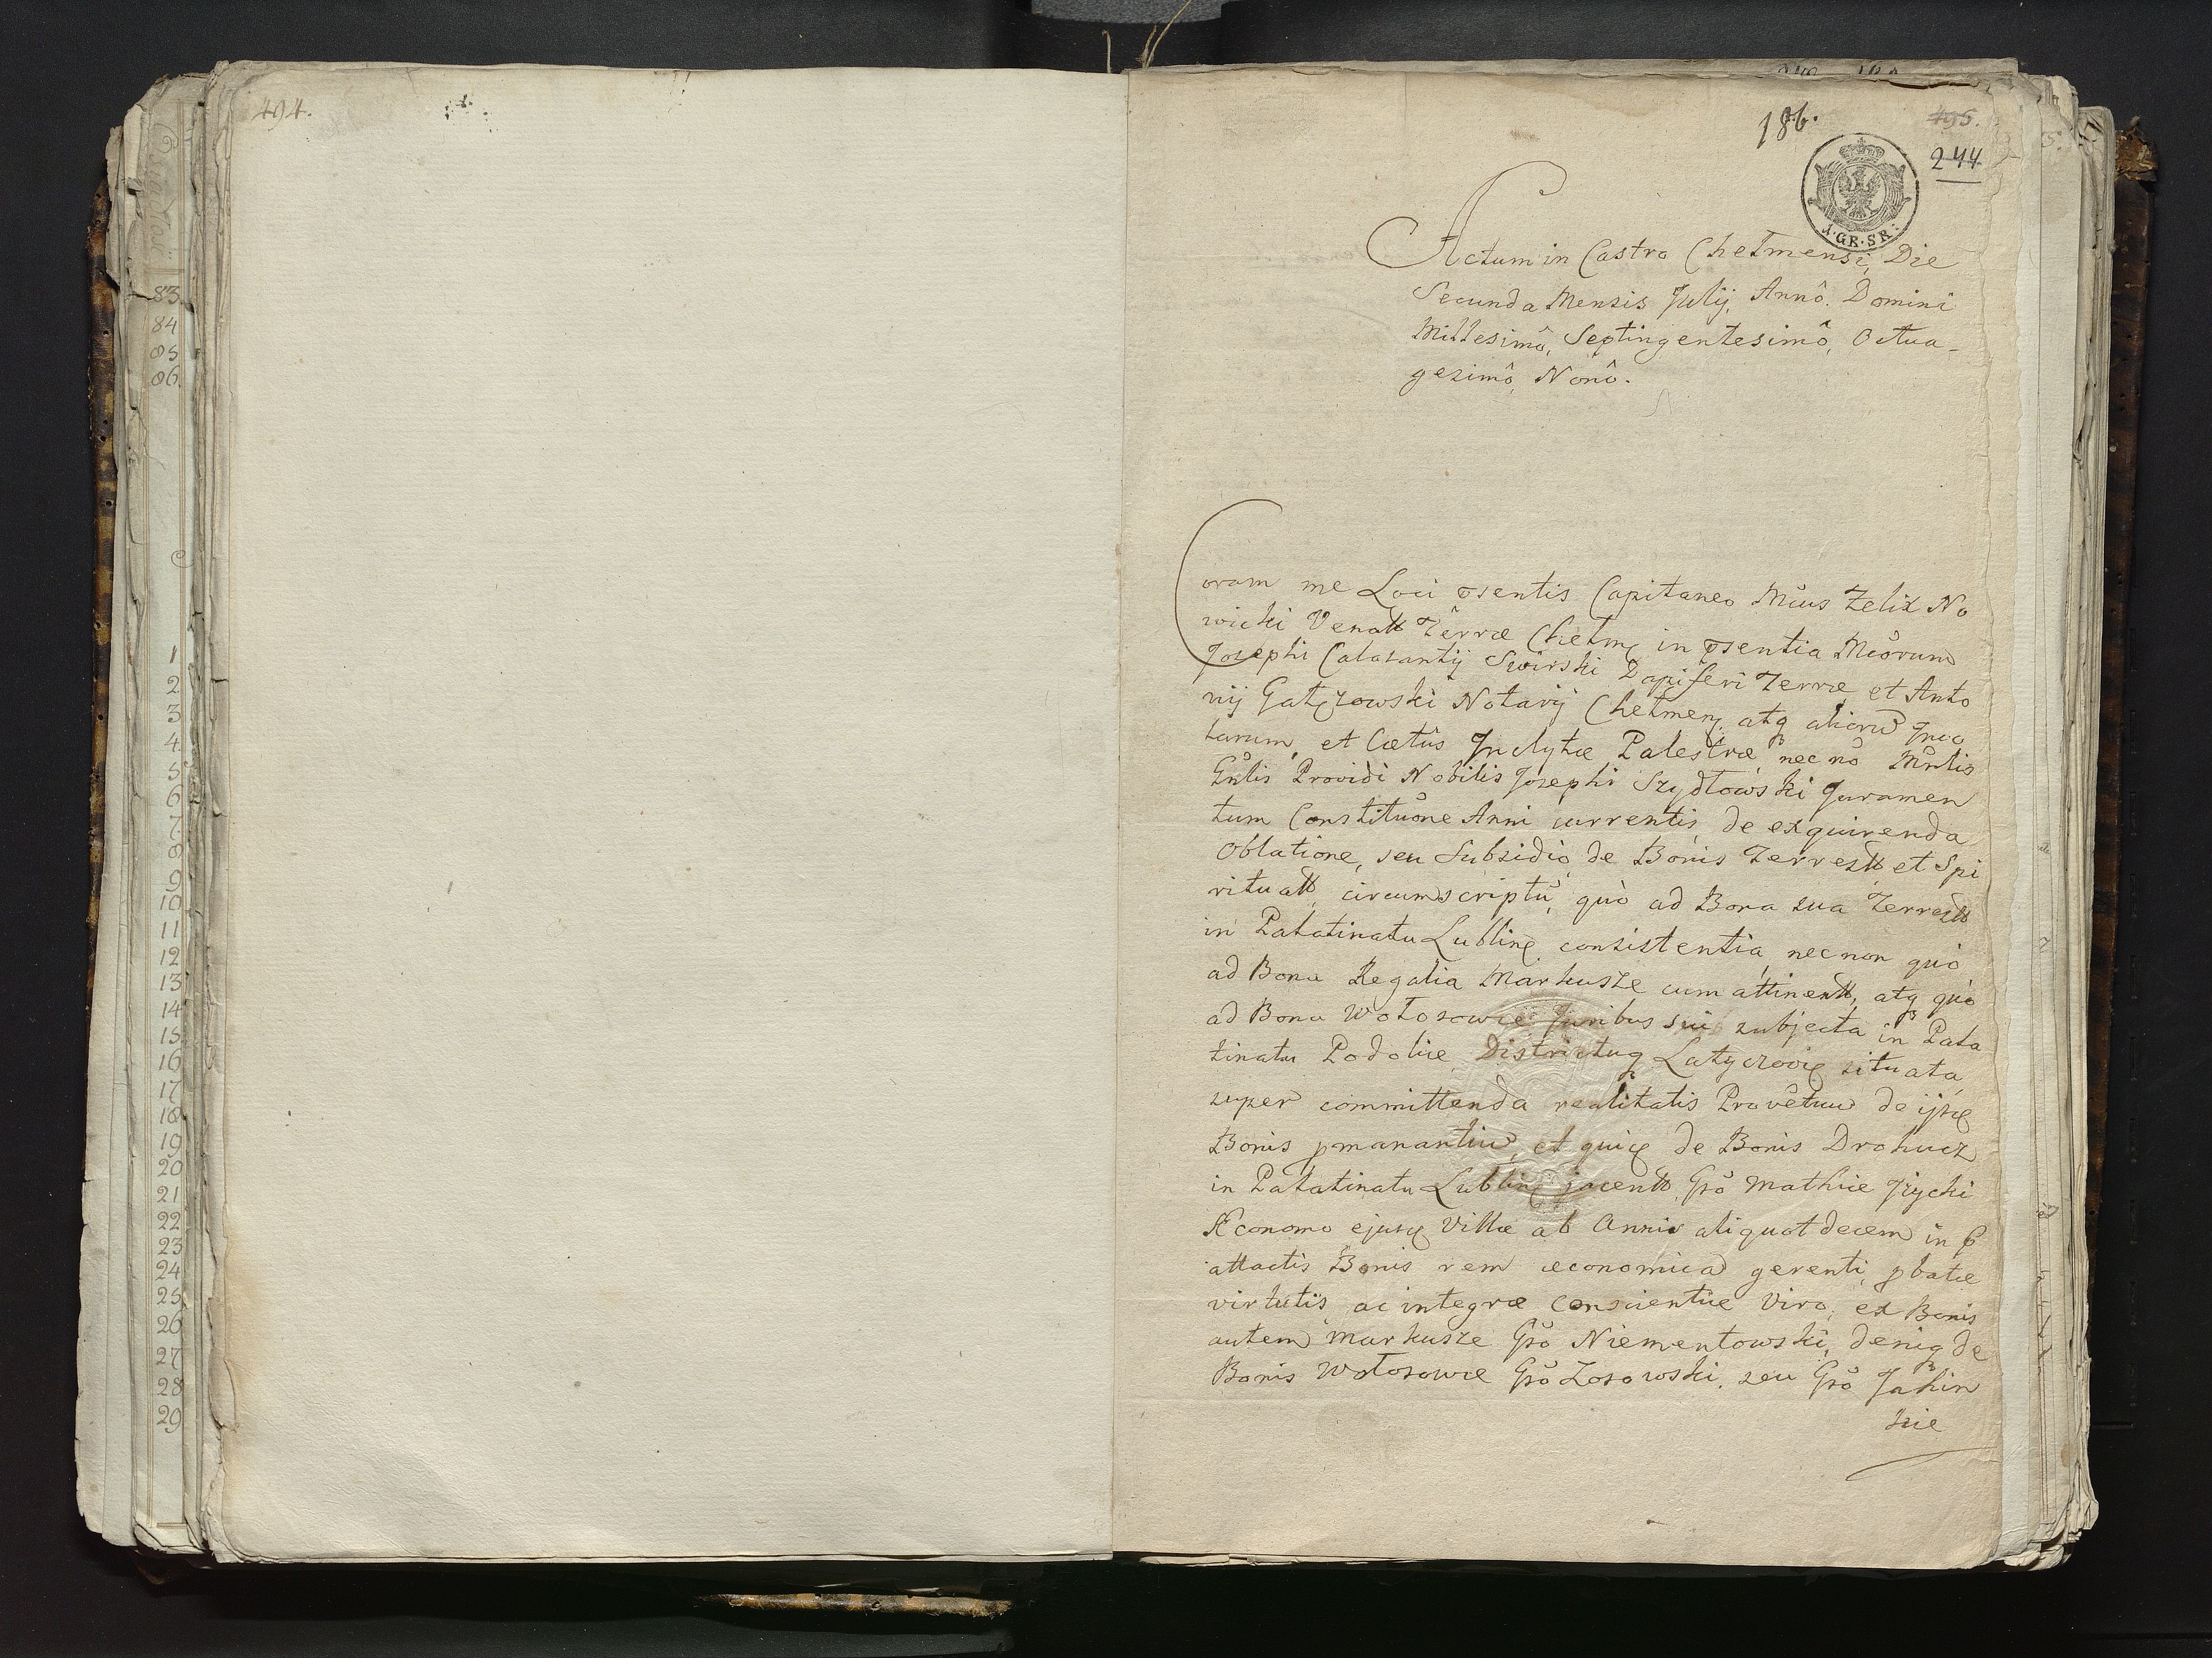 494.
186.
495.
244
1·GR·SR:
Actum in Castro Chełmensi, Die
Secunda Mensis Julij, Annô. Domini
Millesimô, Septingentesimô, Octua-
gesimô, Nonô.
Coram me Loci psentis Capitaneo Mcus Felix No
wicki Venatt Terræ Chełmę in psentia Mcorum
Josephi Calasantij Swirski Dapiferi Terræ et Anto
nij Gałęzowski Notarij Chełmen, atq aliorū Jura
tarum, et Cætûs Inclytæ Palestræ necnô Mnłis
Gnlis Providi Nobilis Josephi Szydłowski Juramen
tum Constituōne Anni currentis, de exquirenda
Oblatione, seu Subsidio, de Bonis Terrestt et Spi
rituatt, circumscriptū, quò ad Bona sua Terrestt
in Palatinatu Lublinę consistentia, necnon quò
ad Bona Regalia Markusze cum attinentt, atq quò
ad Bona Wołosowce Juribus sui subjecta in Pala
tinatu Podoliæ, Districtuq Latyczovię situata,
super committenda realitatis Provêtuū de ijsę
Bonis pmanantiū, et quię de Bonis Drohucz
in Palatinatu Lublinę jacentt, Gsô Mathiæ Jżycki
Æconomo ejusę Villæ ab Annis aliquot decem in p
attactis Bonis rem æconomicā gerenti, pbatæ
virtutis ac integræ conscientiæ Viro, ex Bonis
autem Markusze Gsô Niementowski, deniq de
Bonis Wołosowce Gsô Łosowski, seu Gsô Jahim
skie
83.
84
85
86.
1
2
3
4.
5
6
7.
8
9
10
11
12
13
14
15
16
17
18.
19
20
21
22
23
24
25
26
27
28
29